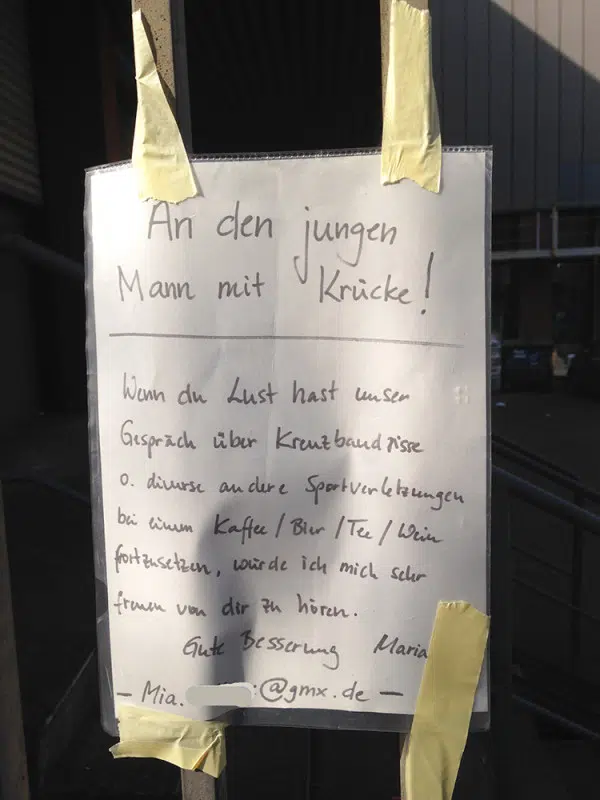 An den jungen
Mann mit Krücke!
Wenn du Lust hast unser
Gespräch über Kreuzbandrisse
o. diverse andere Sportverletzungen
bei einem Kaffee / Bier / Tee / Wein
fortzusetzen, würde ich mich sehr
freuen von dir zu hören.
Gute Besserung Maria
– Mia. :@gmx.de –